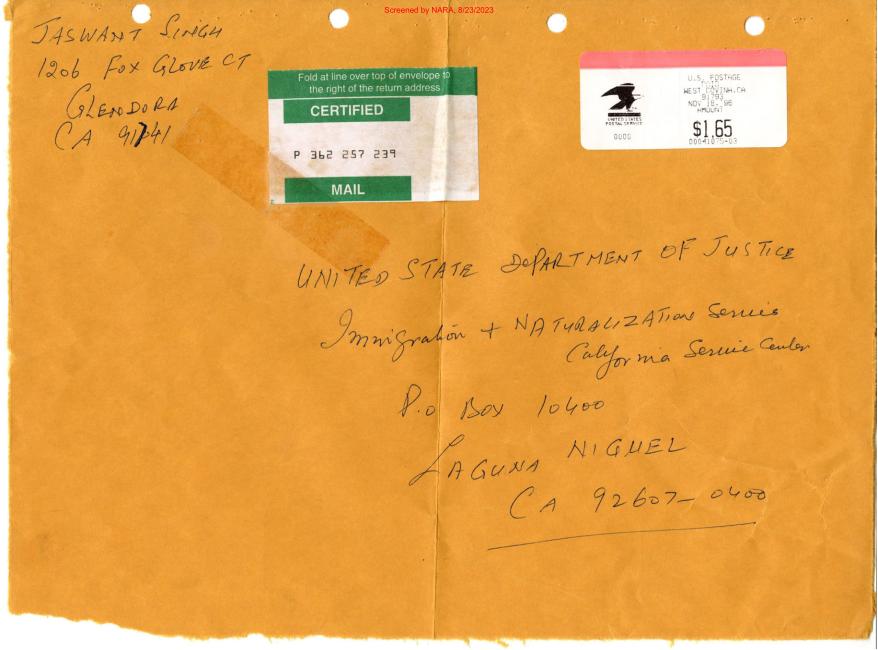 Screened by NARA, 8/23/2023
JASWANT SINGH
1206 FOX GLOVE CT
GLENDORA
CA 91741
Fold at line over top of envelope to
the right of the return address
CERTIFIED
P 362 257 239
MAIL
UNITED STATES
POSTAL SERVICE
0000
U.S. POSTAGE
PAID
WEST COVINA, CA
91793
NOV 18, 96
AMOUNT
$1.65
00041075-03
UNITED STATE DEPARTMENT OF JUSTICE
Immigration + NATURALIZATION Service
California Service Center
P.O BOX 10400
LAGUNA NIGUEL
CA 92607-0400